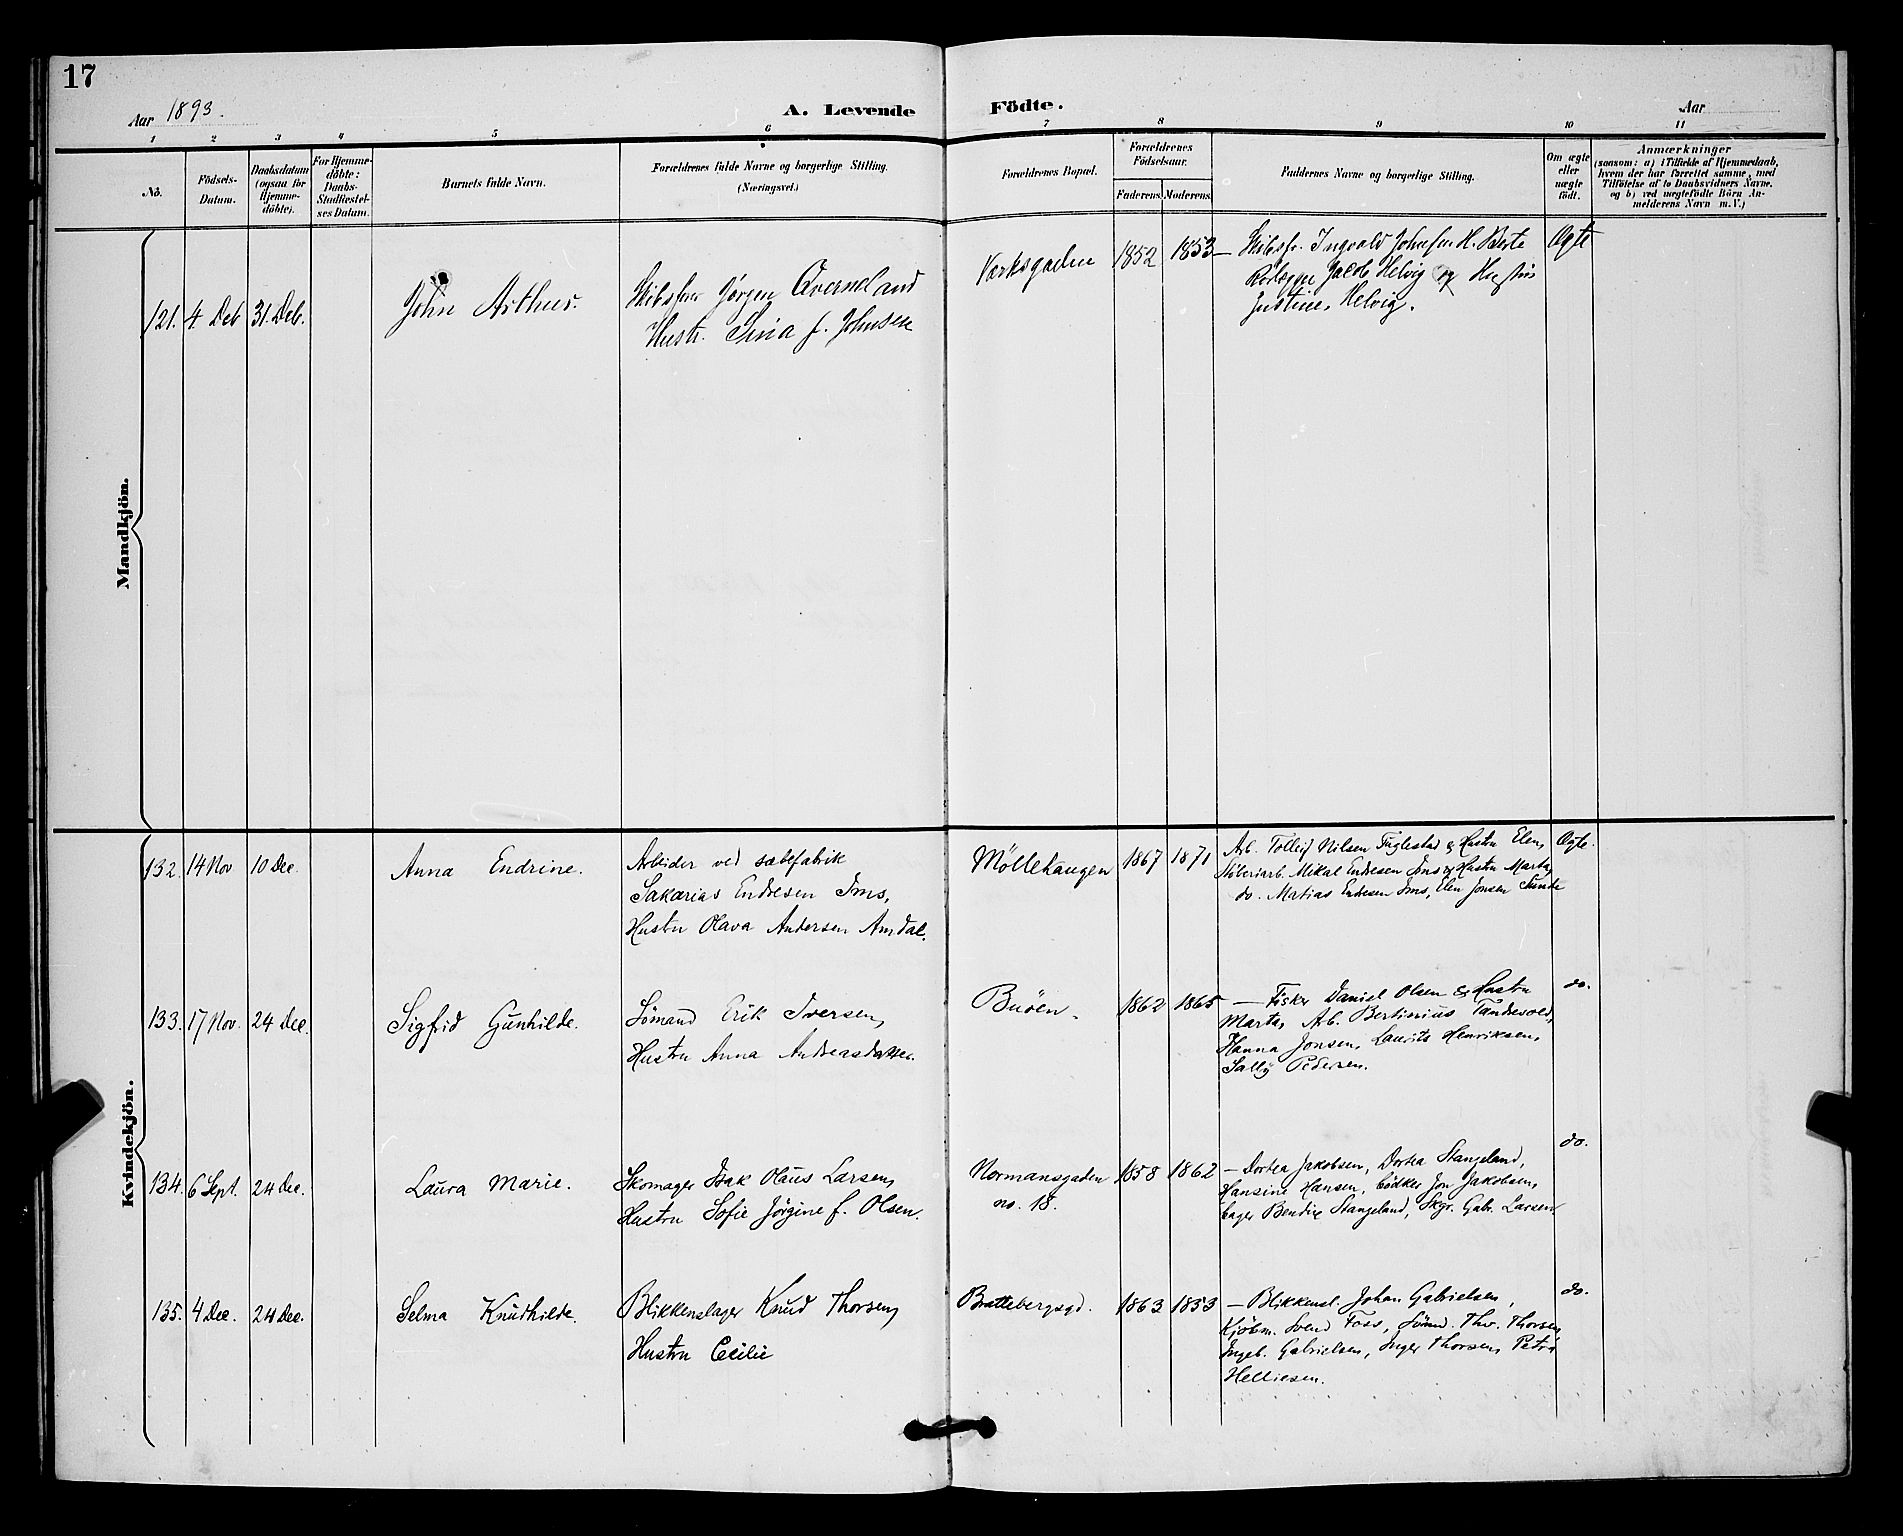 17
Aar 1893.
A. Levende Födte.
Aar
1 2 3 4 5 6 7 8 9 10 11
No.
Födsels-Datum.
Daabsdatum (ogsaa for Hjemme-döbte).
For Hjemme-döbte: Daabs-Stadfæstel-ses Datum.
Barnets fulde Navn.
Forældrenes fulde Navne og borgerlige Stilling. (Næringsvei.)
Forældrenes Bopæl.
Forældrenes Födselsaar.
Faderens. Moderens.
Faddernes Navne og borgerlige Stilling.
Om ægte eller uægte födt.
Anmærkninger
(saasom: a) i Tilfælde af Hjemmedaab,
hvem der har forrettet samme, med
Tilföielse af to Daabsvidners Navne,
og b) ved uægtefödte Börn An-
melderens Navn m.V.)
Mandkjön.
121. 4 Deb 31. Deb.
John Arthur.
Skibsfører Jørgen Qverneland
Hustr. Sina f. Johnsen
Værksgaden
1852 1853
— Skibsfr. Ingvald Johnsen H. Berte
Jacob Helvig og Hustru
Justine Helvig.
Ægte
Kvindekjön.
132. 14 Nov 10 Dec.
Anna Endrine.
Arbeider ved sæbefabrik
Sakarias Endresen Ims,
Hustru Olava Andersen Amdal.
Møllehaugen
1867 1871
Arb. Tolleif Nilsen Fuglestad & Hustru Elen,
Mikal Endresen Ims og Hustru Marta,
do. Matias Endresen Ims, Elen Jonsen Sunde
Ægte.
133. 17 Nov. 24 Dec.
Sigfrid Gunhilde.
Sømand Erik Iversen,
Hustru Anna Andreasdatter.
Buöen.
1862 1865
— Fisker Daniel Olsen & Hustru
Marta, Arb. Bertinius Tandrevold,
Hanna Jonsen, Laurits Henriksen,
Sally Pedersen.
do.
134. 6 Sept. 24 Dec.
Laura Marie.
Skomager Isak Olaus Larsen,
Hustru Sofie Jørgine f. Olsen.
Normansgaden
no. 18.
1858 1862
— Dortea Jakobsen, Dortea Stangeland,
Hansine Hansen, bødker Jon Jakobsen,
bager Bendix Stangeland, Skgr. Gabr. Larsen
do.
135. 4 Dec. 24 Dec.
Selma Knudhilde.
Blikkenslager Knud Thorsen,
Hustru Cecilie
Brattebergsgd.
1863 1853
— Blikkensl. Johan Gabrielsen,
Kjöbm. Svend Foss, Sömd. Thv. Thorsen,
Ingeb. Gabrielsen, Inger Thorsen, Petra
Helliesen.
do.